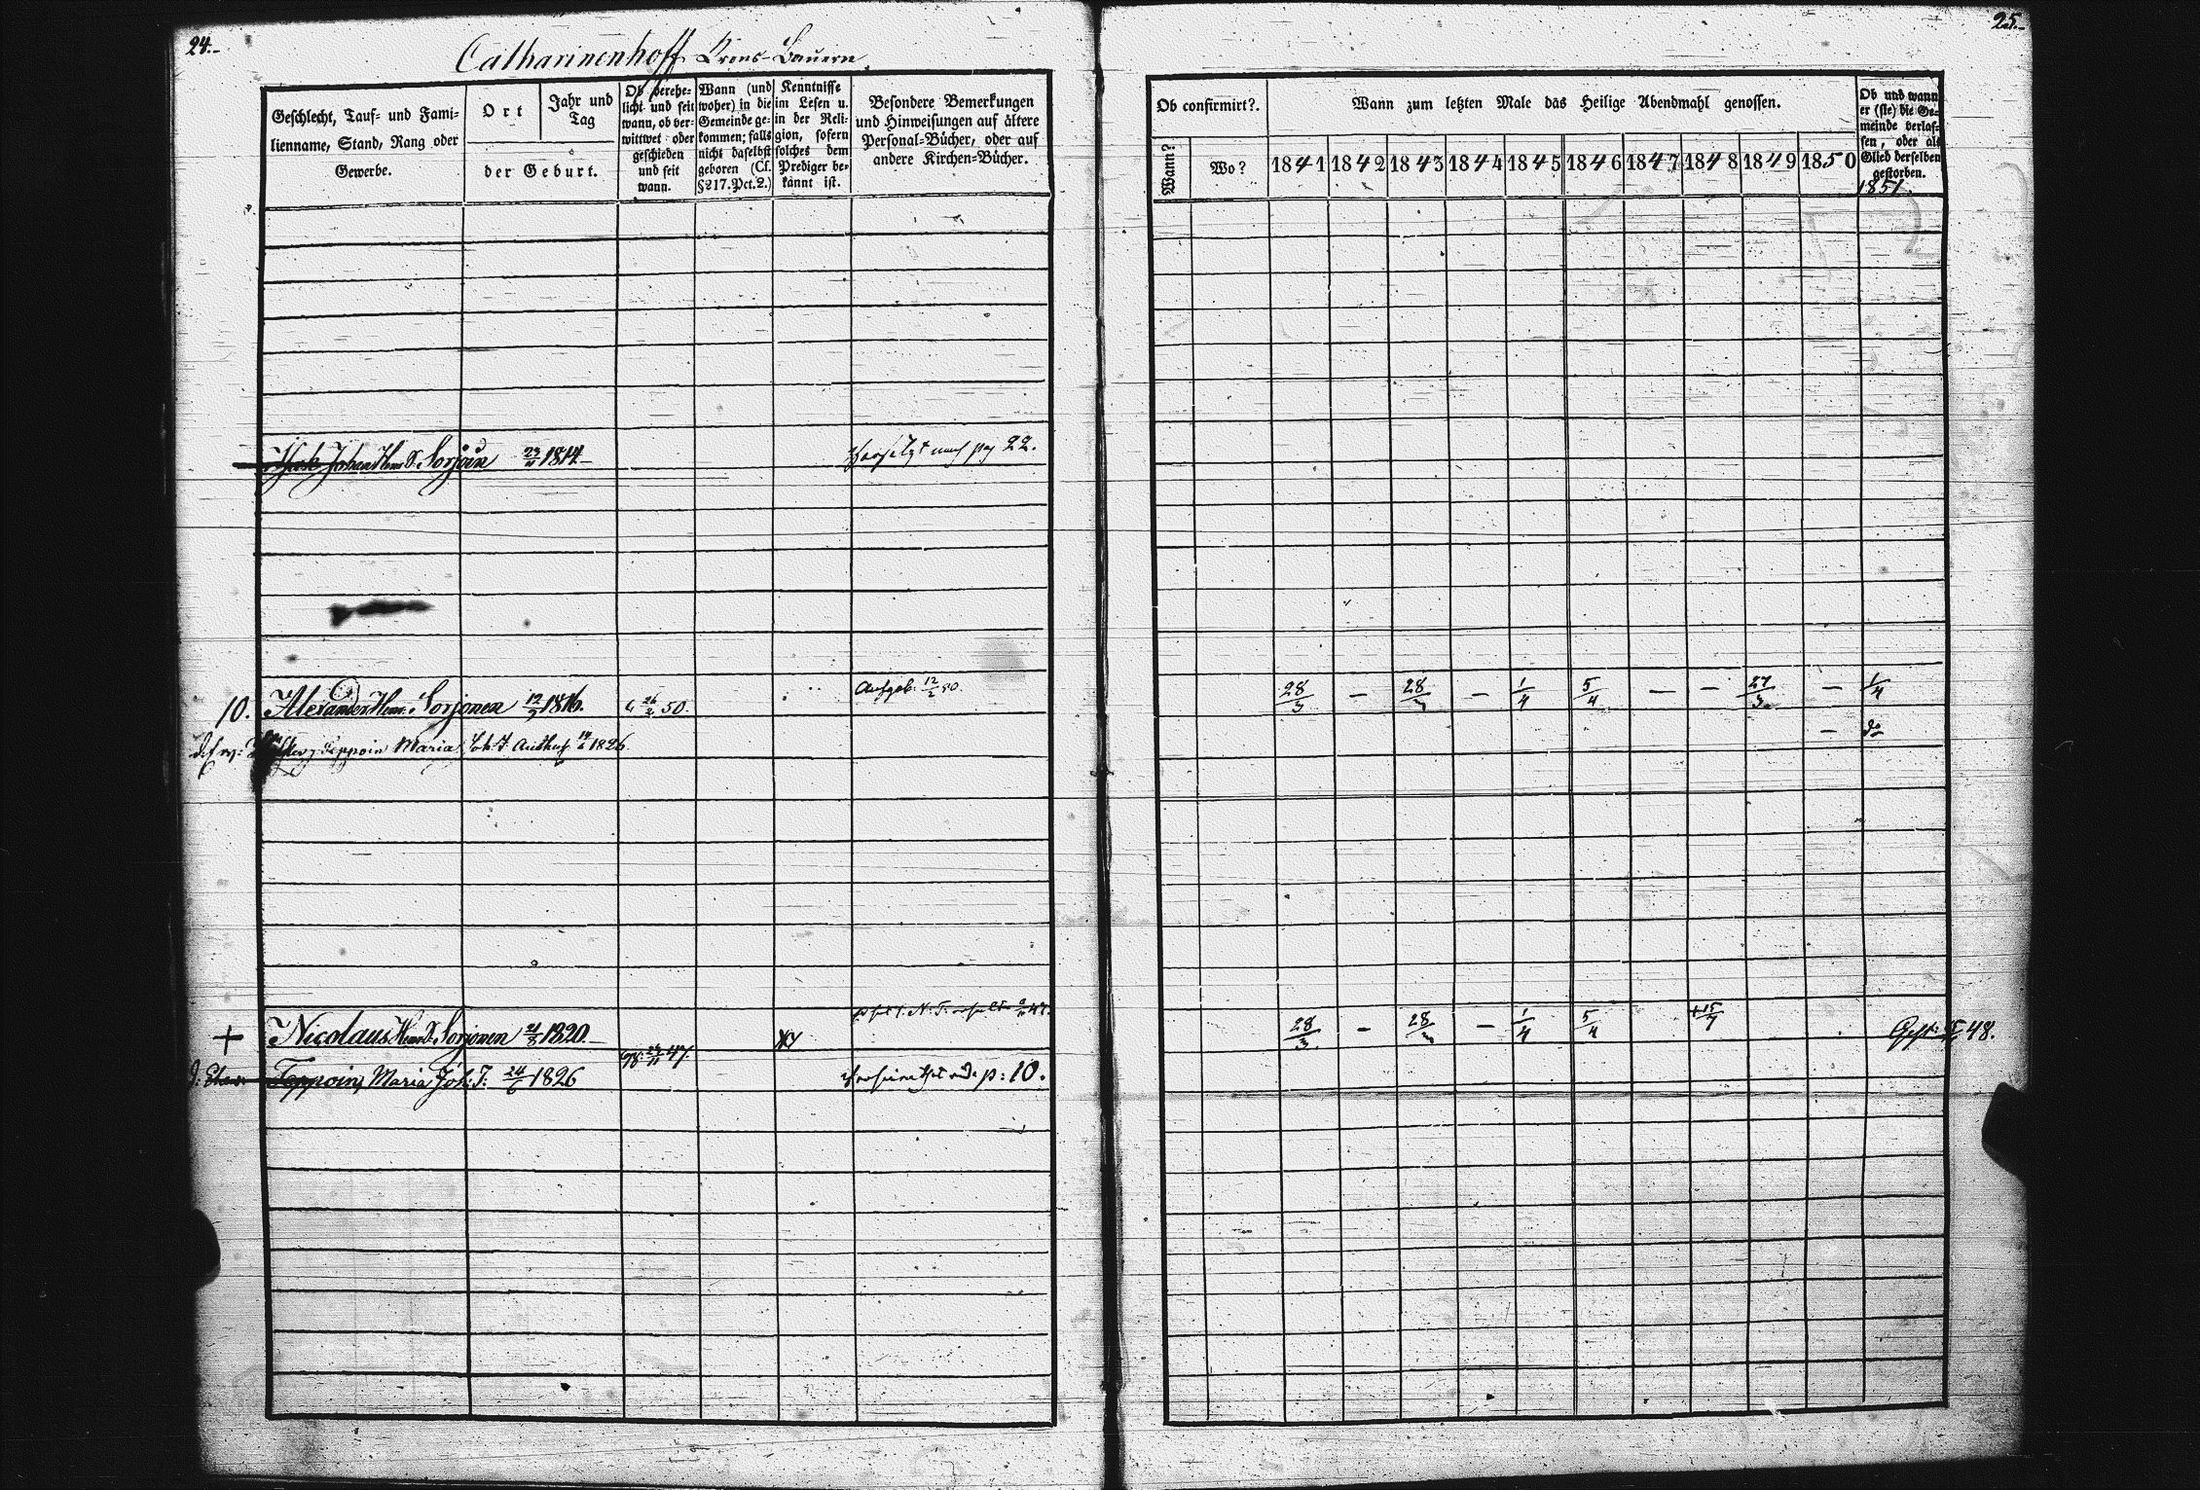 24.
Catharinenhoff Krons-Bauern
Geschlecht, Tauf- und Fami-
lienname, Stand, Rang oder
Gewerbe.
Ort
Jahr und
Tag
der Geburt.
Ob verehe-
licht und seit
wann, ob ver-
wittwet oder
geschieden
und seit
wann.
Wann (und
woher) in die
Gemeinde ge-
kommen; falls
nicht daselbst
geboren (Cf.
§217. Pct. 2.)
Kenntnisse
im Lesen u.
in der Reli-
gion, sofern
solches dem
Prediger be-
kannt ist.
Besondere Bemerkungen
und Hinweisungen auf ältere
Personal-Bücher, oder auf
andere Kirchen-Bücher.
Johan Hinr. S. Sorjoin 1814 pag 22.
10. Alexander Hinr. Sorjonen 12/9 1816. 26/2 50. Aufgeb. 12/2 50.
Teppoin Maria Joh. T. 1826
+ Nicolaus Hinr. S. Sorjonen 21/3 1820
47.
Teppoin, Maria Joh: T: 24/6 1826 p: 10.
25.
Ob confirmirt?.
Wann?
Wo?
Wann zum letzten Male das Heilige Abendmahl genossen.
1841 1842 1843 1844 1845 1846 1847 1848 1849 1850
Ob und wann
er (sie) die Ge-
meinde verlas-
sen, oder als
Glied derselben
gestorben.
1851.
28/3 – 28/3 – 1/4 5/4 – – 27/3 – 1/4
– do
28/3 – 28/3 – 1/4 5/4 +15/7 48.